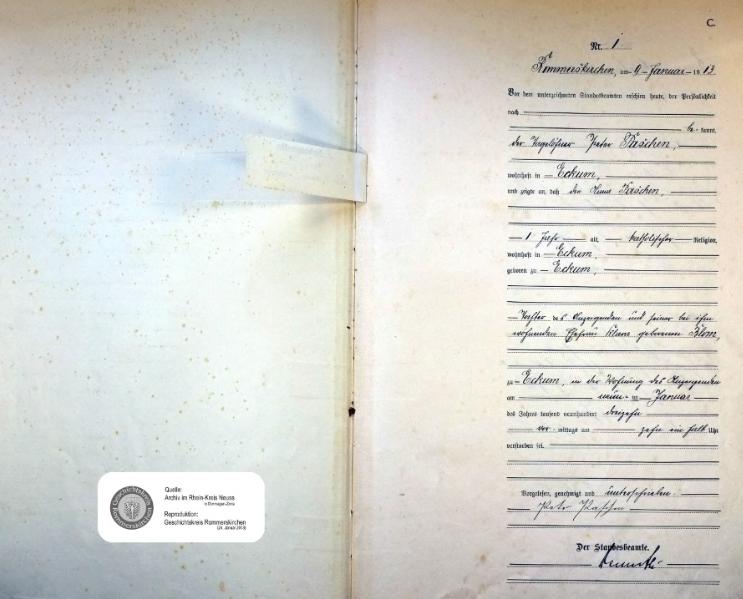 C.
Nr. 1
Rommerskirchen, am 9 Januar 1913
Vor dem unterzeichneten Standesbeamten erschien heute, der Persönlichkeit
nach
be kannt,
der Peter Paschen,
wohnhaft in Eckum,
und zeigte an, daß Paschen,
1 Jahr alt, katholischer Religion,
wohnhaft in Eckum,
geboren zu Eckum,
Tochter des Anzeigenden und seiner bei ihm
wohnenden Ehefrau geborenen Blom,
zu Eckum, in der Wohnung des Anzeigenden
am neun ten Januar
des Jahres tausend neunhundert dreizehn
vor mittags um zehn ein halb Uhr
verstorben sei.
Vorgelesen, genehmigt und unterschrieben.
Peter Paschen
Der Standesbeamte.
Geschichtskreis Rommerskirchen
Quelle:
Archiv im Rhein-Kreis Neuss
in Dormagen-Zons
Reproduktion:
Geschichtskreis Rommerskirchen